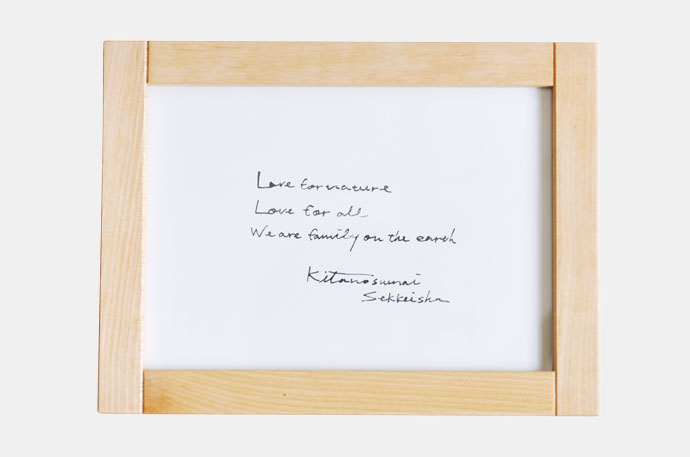 Love for nature
Love for all
We are family on the earth
Kitanosumai
Sekkeisha